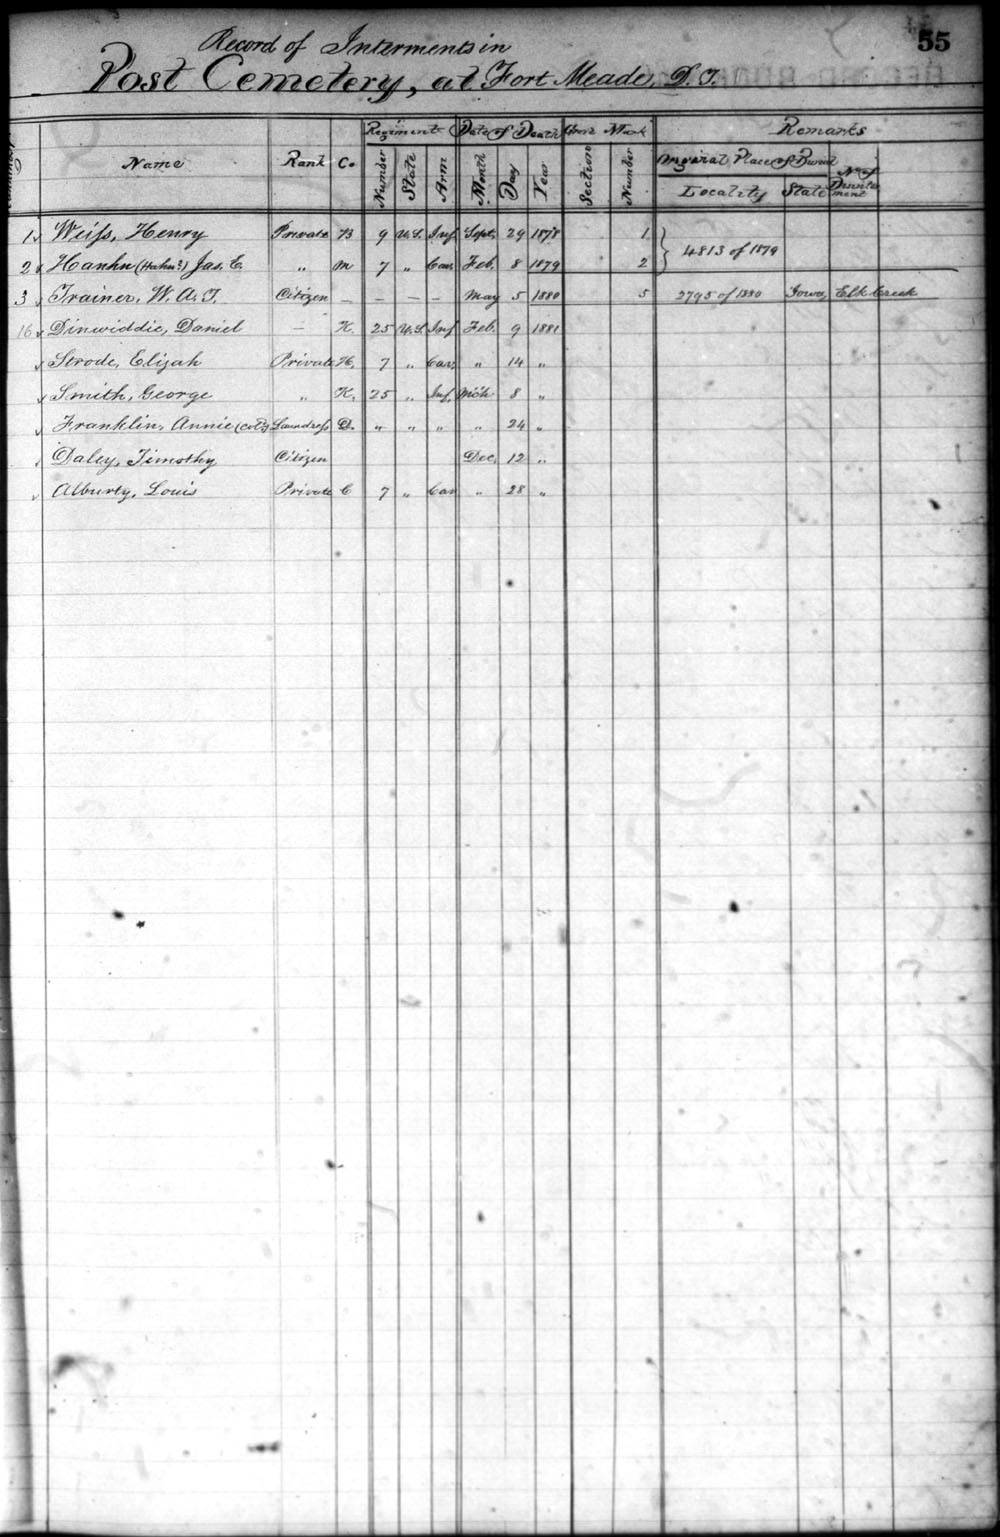 55
Record of Interments in
Post Cemetery, at Fort Meade, D.T.
Regiment Date of Death Grave Mark Remarks
Name Rank Co. Number State Arm Month Day Year Section Number Original Place of Burial No. of Disinterment
Locality State
1 Weiss, Henry Private B 9 U.S. Inf Sept. 29 1878 1
4813 of 1879
2 Hanhn (Hahn?) Jas. E. " M 7 " Cav. Feb. 8 1879 2
3 Trainer, W. A. T. Citizen – – – – May 5 1880 5 2795 of 1880 Iowa, Elk Creek
16 Dinwiddie, Daniel – K. 25 U.S. Inf Feb. 9 1881
Strode, Elijah Private H, 7 " Cav, " 14 "
Smith, George " K, 25 " Inf, Mch 8 "
Franklin, Annie (Col'd) Laundress D. " " " " 24 "
Daley, Timothy Citizen Dec, 12 "
Alburty, Louis Private C 7 " Cav " 28 "